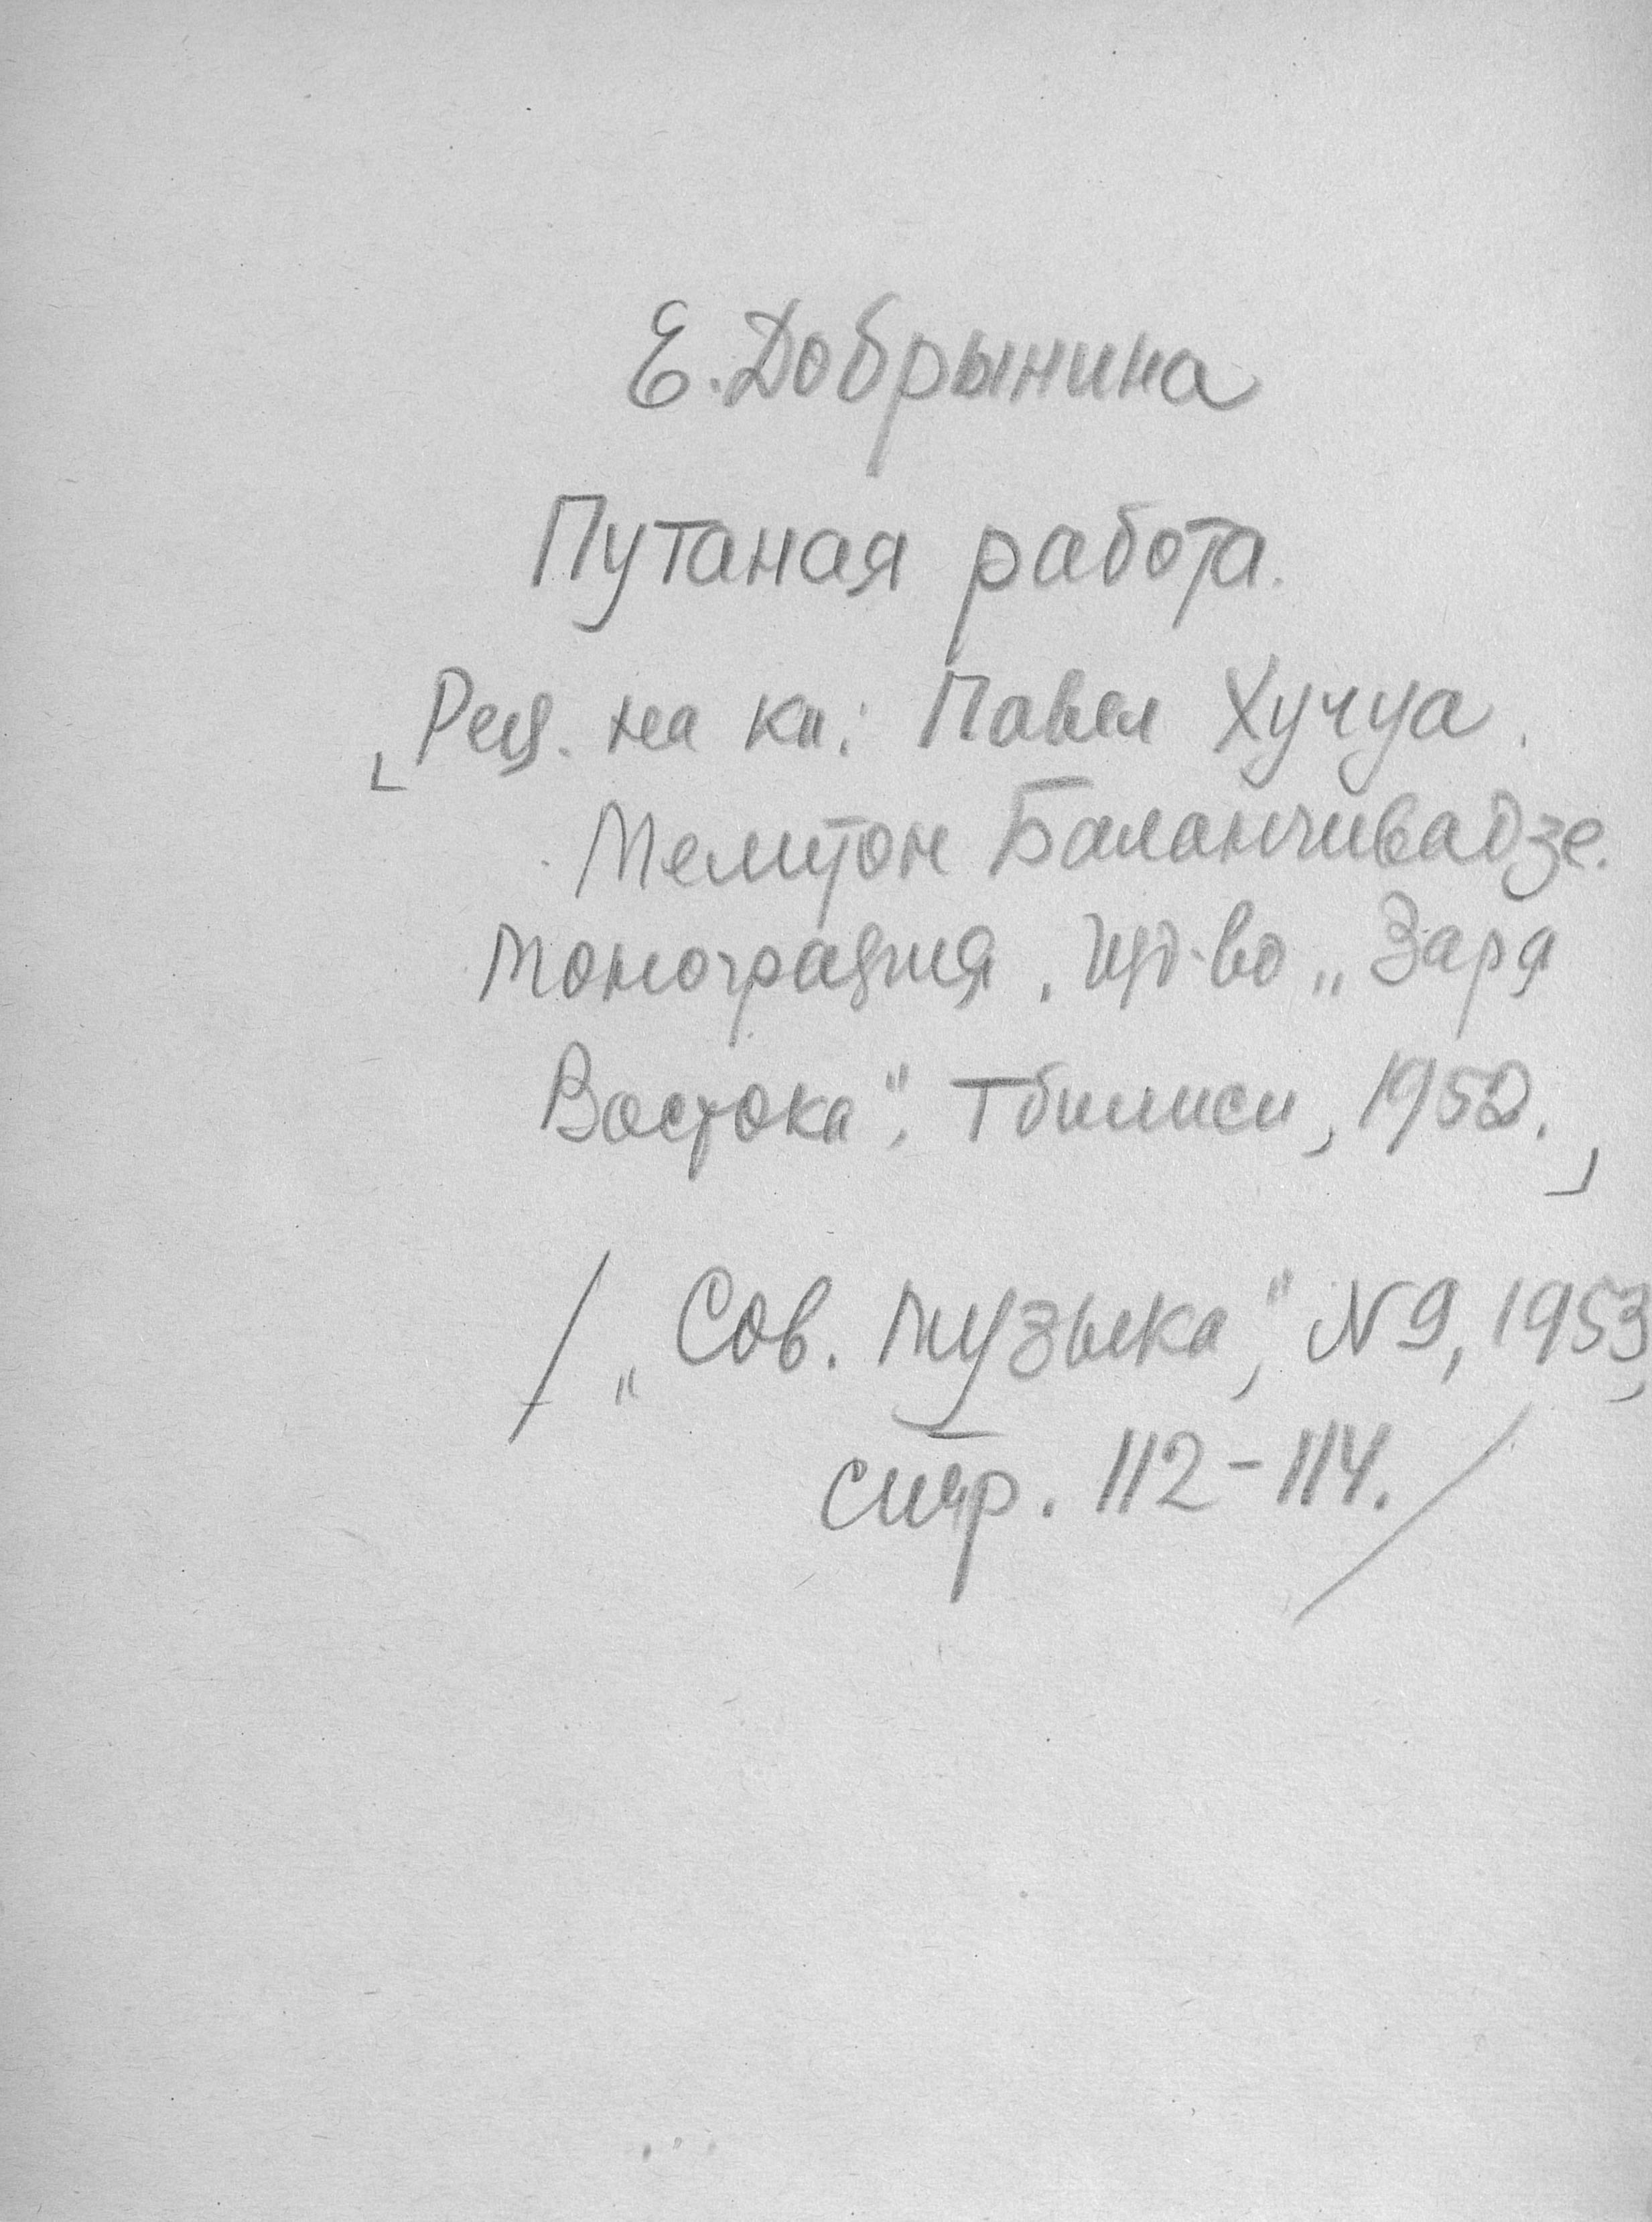 Е. Добрынина
Путаная работа.
[Рец. на кн: Павел Хучуа.
Мелитон Баланчивадзе.
Монография. Изд-во „Заря
Востока", Тбилиси, 1952.]
/„Сов. музыка", № 9, 1953,
стр. 112-114./